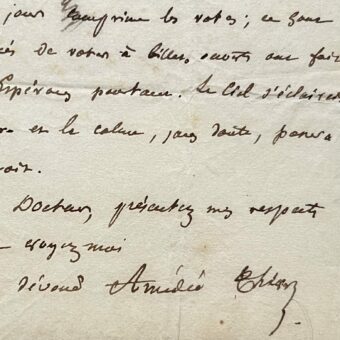 jours comprime les votes; ce sont
de voter à billets ouverts ont fait
Espérons pourtant. Le Ciel s'éclaircit,
et le calme, sans doute, pourra
Docteur, présentez mes respects
croyez moi
dévoué Amédée Thierry